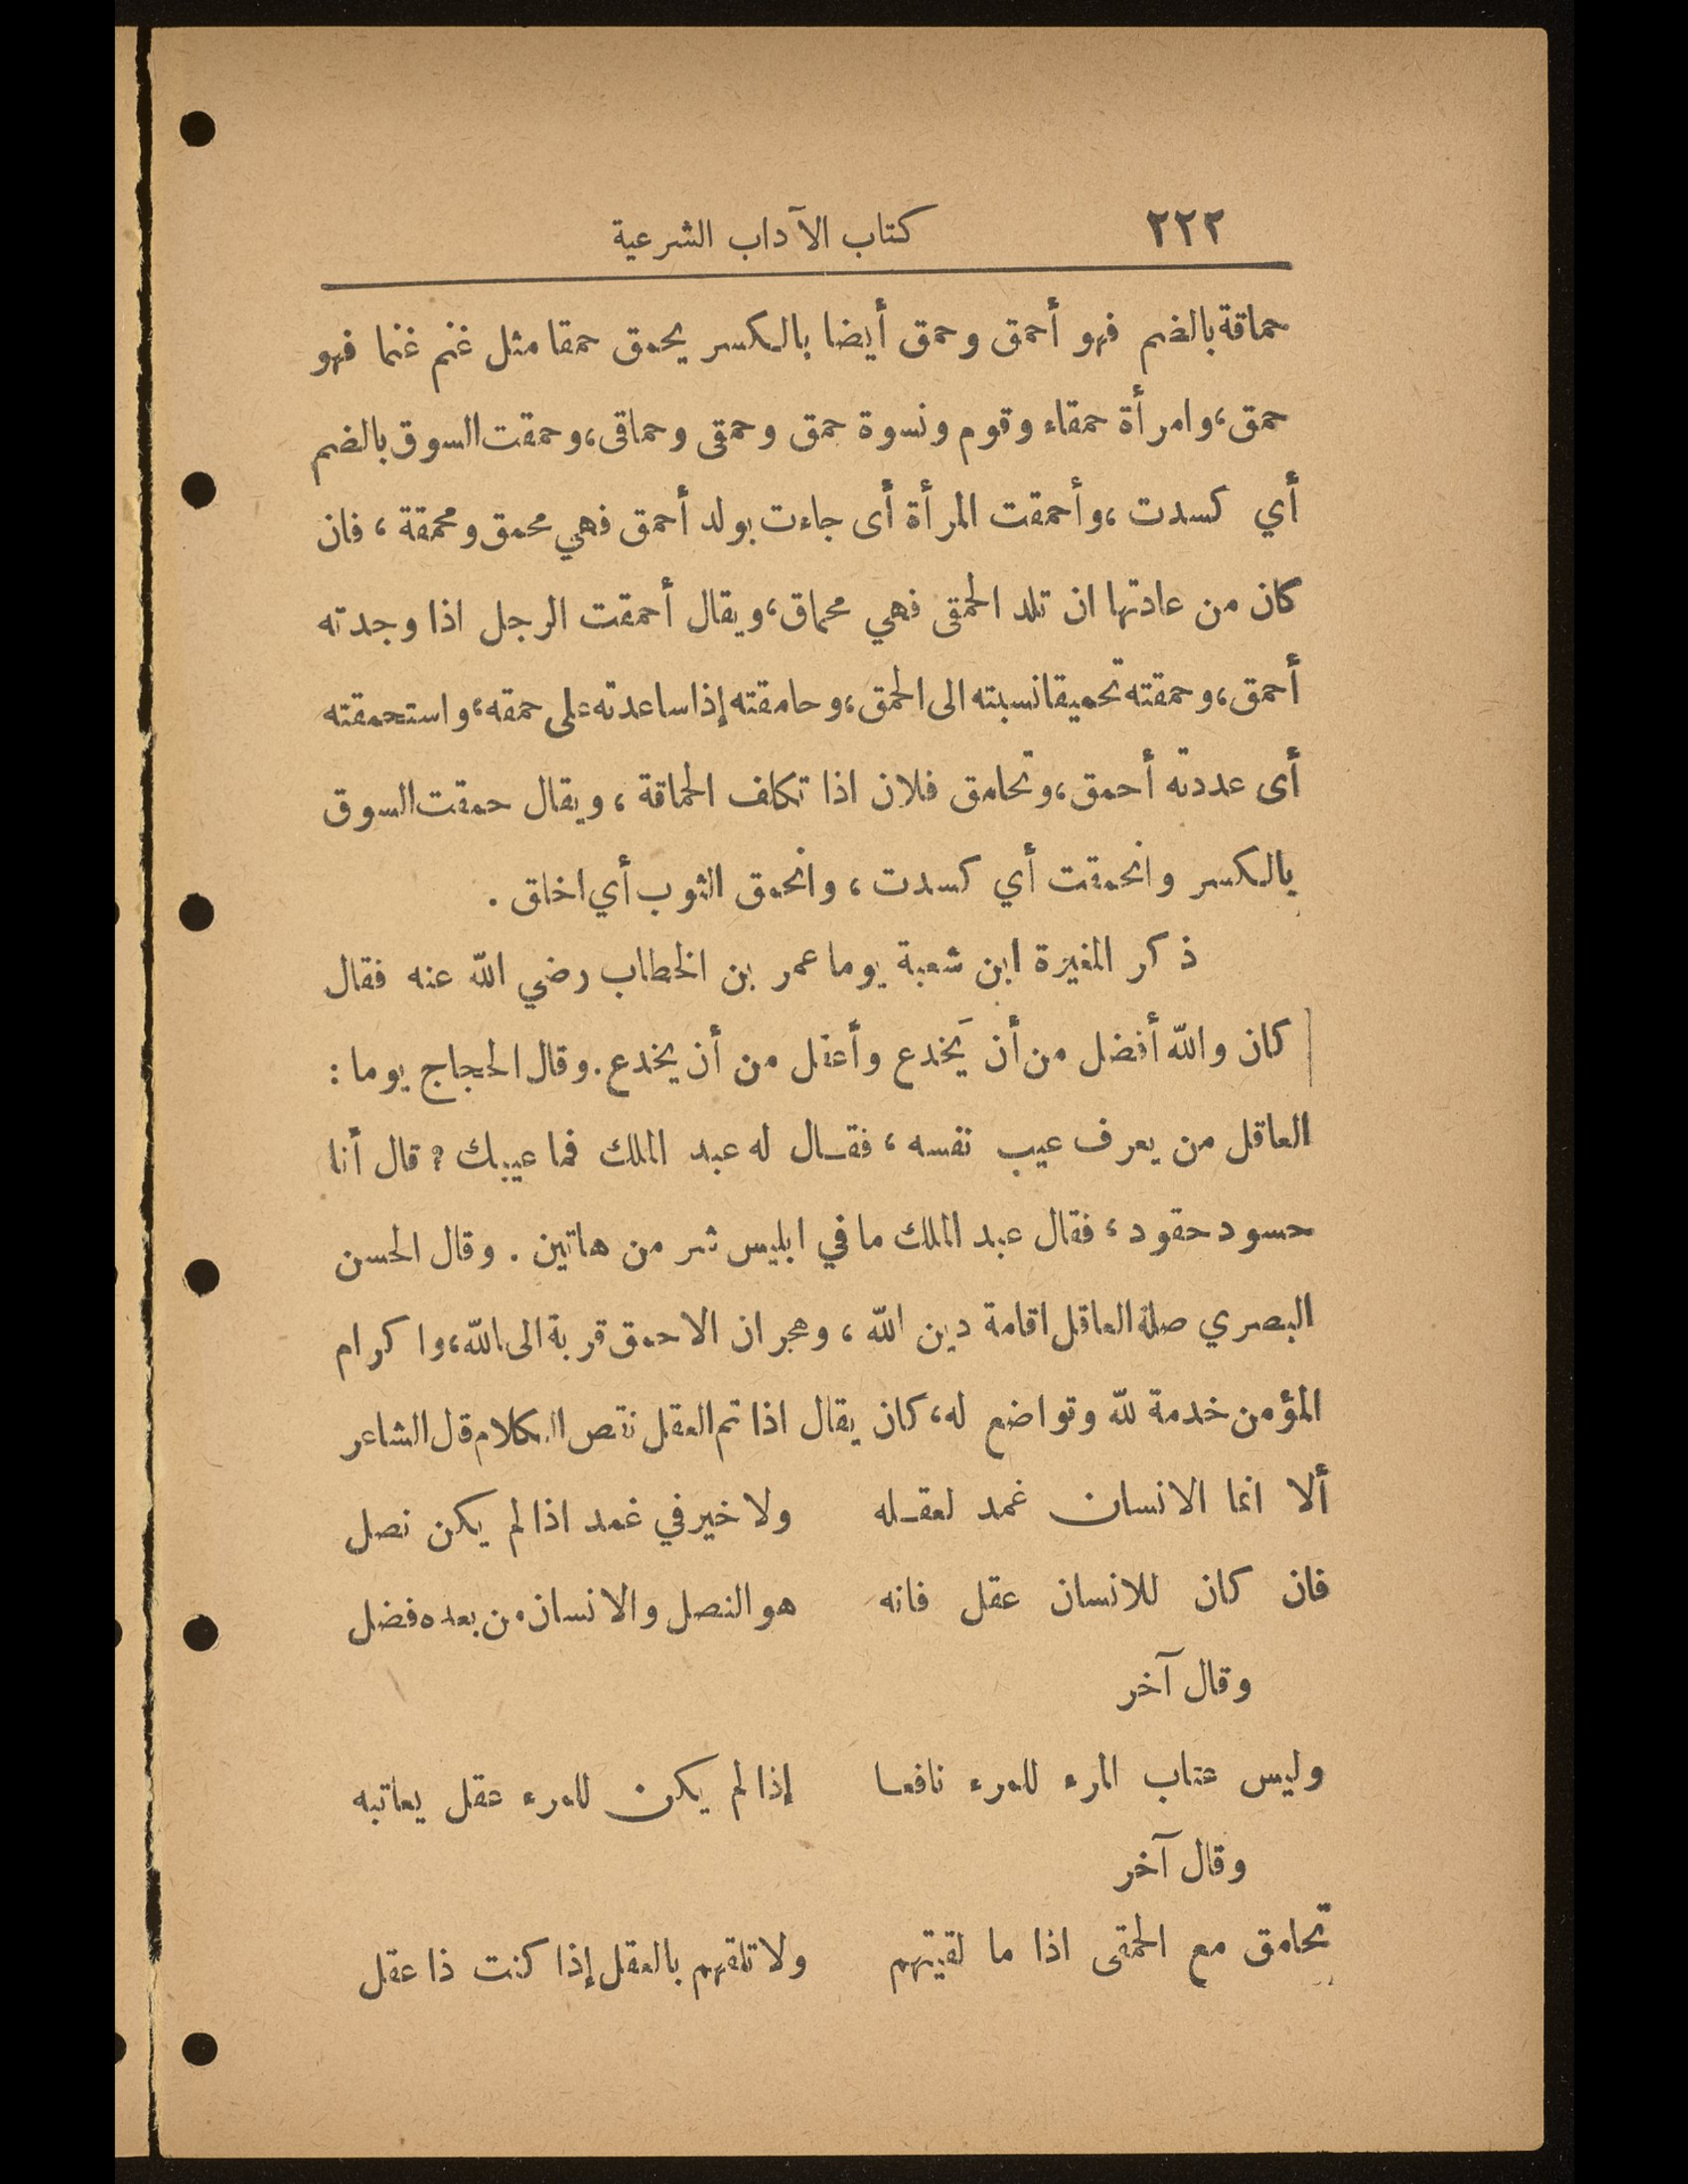 ٢٢٢ كتاب الآداب الشرعية
حماقة بالضم فهو أحمق وحمق أيضا بالكسر يحمق حمقا مثل غنم غنما فهو
حمق، وامرأة حمقاء وقوم ونسوة حمق وحمقى وحماقى، وحمقت السوق بالضم
أي كسدت، وأحمقت المرأة أى جاءت بولد أحمق فهي محمق ومحمقة، فان
كان من عادتها ان تلد الحمقى فهي محماق، ويقال أحمقت الرجل اذا وجدته
أحمق، وحمقته تحميقا نسبته الى الحمق، وحامقته إذا ساعدته على حمقه، واستحمقته
أى عددته أحمق، وتحامق فلان اذا تكلف الحماقة، ويقال حمقت السوق
بالكسر وانحمقت أي كسدت، وانحمق الثوب أي اخلق.
ذكر المغيرة ابن شعبة يوما عمر بن الخطاب رضي الله عنه فقال
كان والله أفضل من أن يَخدع وأعقل من أن يخدع. وقال الحجاج يوما:
العاقل من يعرف عيب نفسه، فقـال له عبد الملك فما عيبك؟ قال أنا
حسود حقود، فقال عبد الملك ما في ابليس شر من هاتين. وقال الحسن
البصري صلة العاقل اقامة دين الله، وهجران الاحمق قربة الى الله، واكرام
المؤمن خدمة لله وتواضع له، كان يقال اذا تم العقل نقص الكلام قل الشاعر
ألا انما الانسان غمد لعقـله ولا خير في غمد اذا لم يكن نصل
فان كان للانسان عقل فانه هو النصل والانسان من بعده فضل
وقال آخر
وليس عتاب المرء للمرء نافعا إذا لم يكن للمرء عقل يعاتبه
وقال آخر
تحامق مع الحمقى اذا ما لقيتهم ولا تلقهم بالعقل إذا كنت ذا عقل